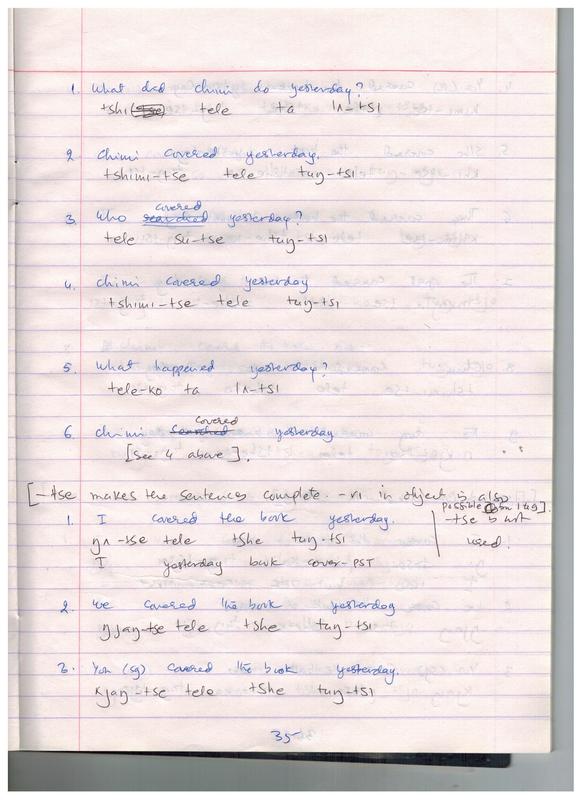 1. What did chimi do yesterday?
tshi tele ta lʌ-tsɪ
2 Chimi covered yesterday.
tshimi-tse tele tuŋ-tsɪ
covered
3. Who searched yesterday?
tele su-tse tuŋ-tsɪ
4. Chimi covered yesterday
tshimi-tse tele tuŋ-tsɪ
5. What happened yesterday?
tele-ko ta lʌ-tsɪ
covered
6. Chimi searched yesterday
[See 4 above].
[-tse makes the sentences complete. -rɪ in object is also
possible
1. I covered the book yesterday. -tse is not
ŋʌ-tse tele tshe tuŋ-tsɪ used.
I yesterday book cover-PST
2. We covered the book yesterday
ŋjaŋ-tse tele tshe tuŋ-tsɪ
3. You (sg) covered the book yesterday.
kjaŋ-tse tele tshe tuŋ-tsɪ
35